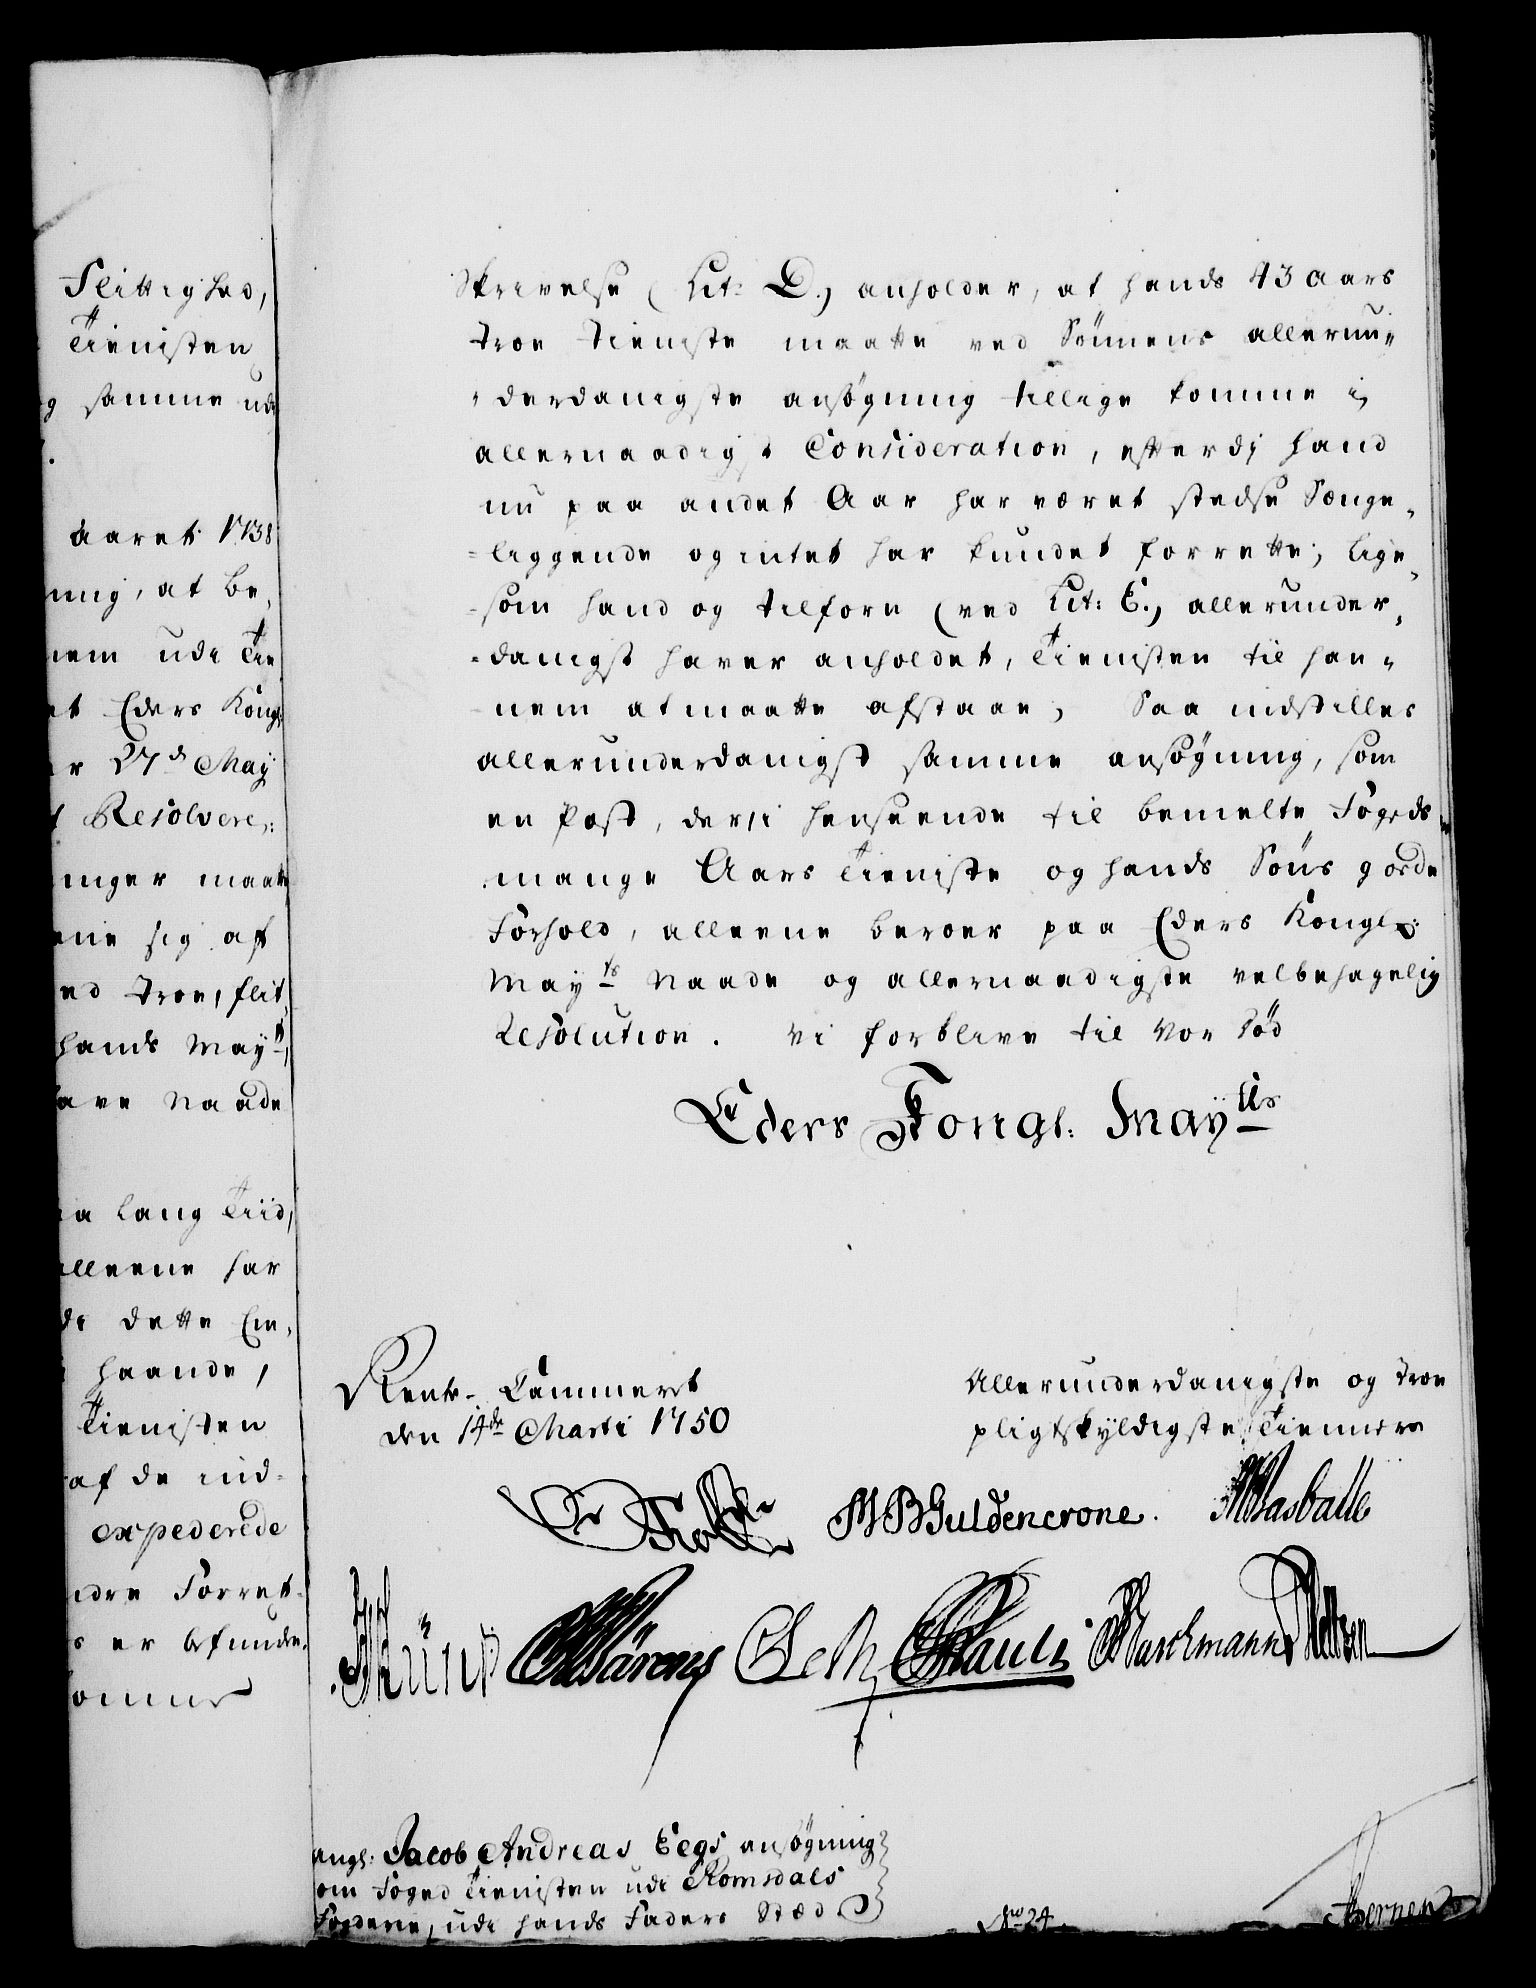 Flittighed,
Tienisten
samme udi
aaret 1738
ning, at be,
nem udi Tie
Eders Kongl:
27de May
Resolvere:
inger maatte
sig af
troe, flit,
hands Mayts,
Naade
lang Tiid,
alleene har
dette Em,
haande,
Tienisten
af de ind-
expederede
Forret-
er befunden
Skrivelse (Lit: D.) anholder, at hands 43 aars
troe tieniste maatte ved Sönnens allerun-
derdanigste ansögning tillige komme i
allernaadigst Consideration, efterdi hand
nu paa andet Aar har været stedse Sænge-
-liggende og intet har kundet forrette; lige-
-som hand og tilforn (ved Lit: E.) allerunder-
-danigst haver anholdet, Tienisten til han-
nem at maatte afstaae; Saa indstilles
allerunderdanigst samme ansøgning, som
en Post, der i henseende til bemelte Fogeds
mange Aars Tieniste og hands Söns goede
Forhold, alleene beroer paa Eders Kongl:
Mayts Naade og allernaadigste velbehagelig
Resolution. Vi forblive til vor Död
Eders Kongl: Mayts
Rente-Cammeret
den 14de Marti 1750
Allerunderdanigste og troe
pligtskyldigste Tiennere
M B Guldencrone.
Pauli
angl: Jacob Andreas Eegs ansögning
om Foged Tienisten udi Romsdals
Fogderie, udi hands Faders Stæd
No 24.